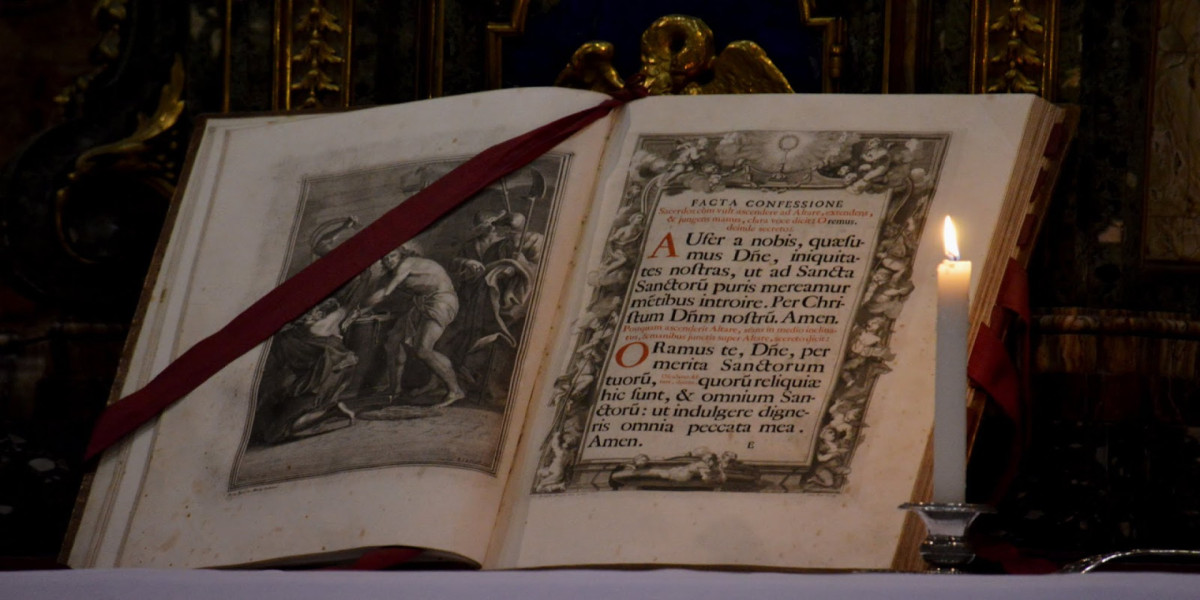 FACTA CONFESSIONE
Sacerdos cùm vult ascendere ad Altare, extendens,
& jungens manus, clara voce dicit: Oremus.
deinde secretò:
AUfer a nobis, quæſu-
mus Dñe, iniquita-
tes noſtras, ut ad Sancta
Sanctorũ puris mereamur
mẽtibus introire. Per Chri-
ſtum Dñm noſtrũ. Amen.
Postquam ascenderit Altare,
& manibus junctis super Altare, secretò dicit:
ORamus te, Dñe, per
merita Sanctorum
tuorũ, quorũ reliquiæ
hic ſunt, & omnium San-
ctorũ: ut indulgere digne-
ris omnia peccata mea.
Amen.
E